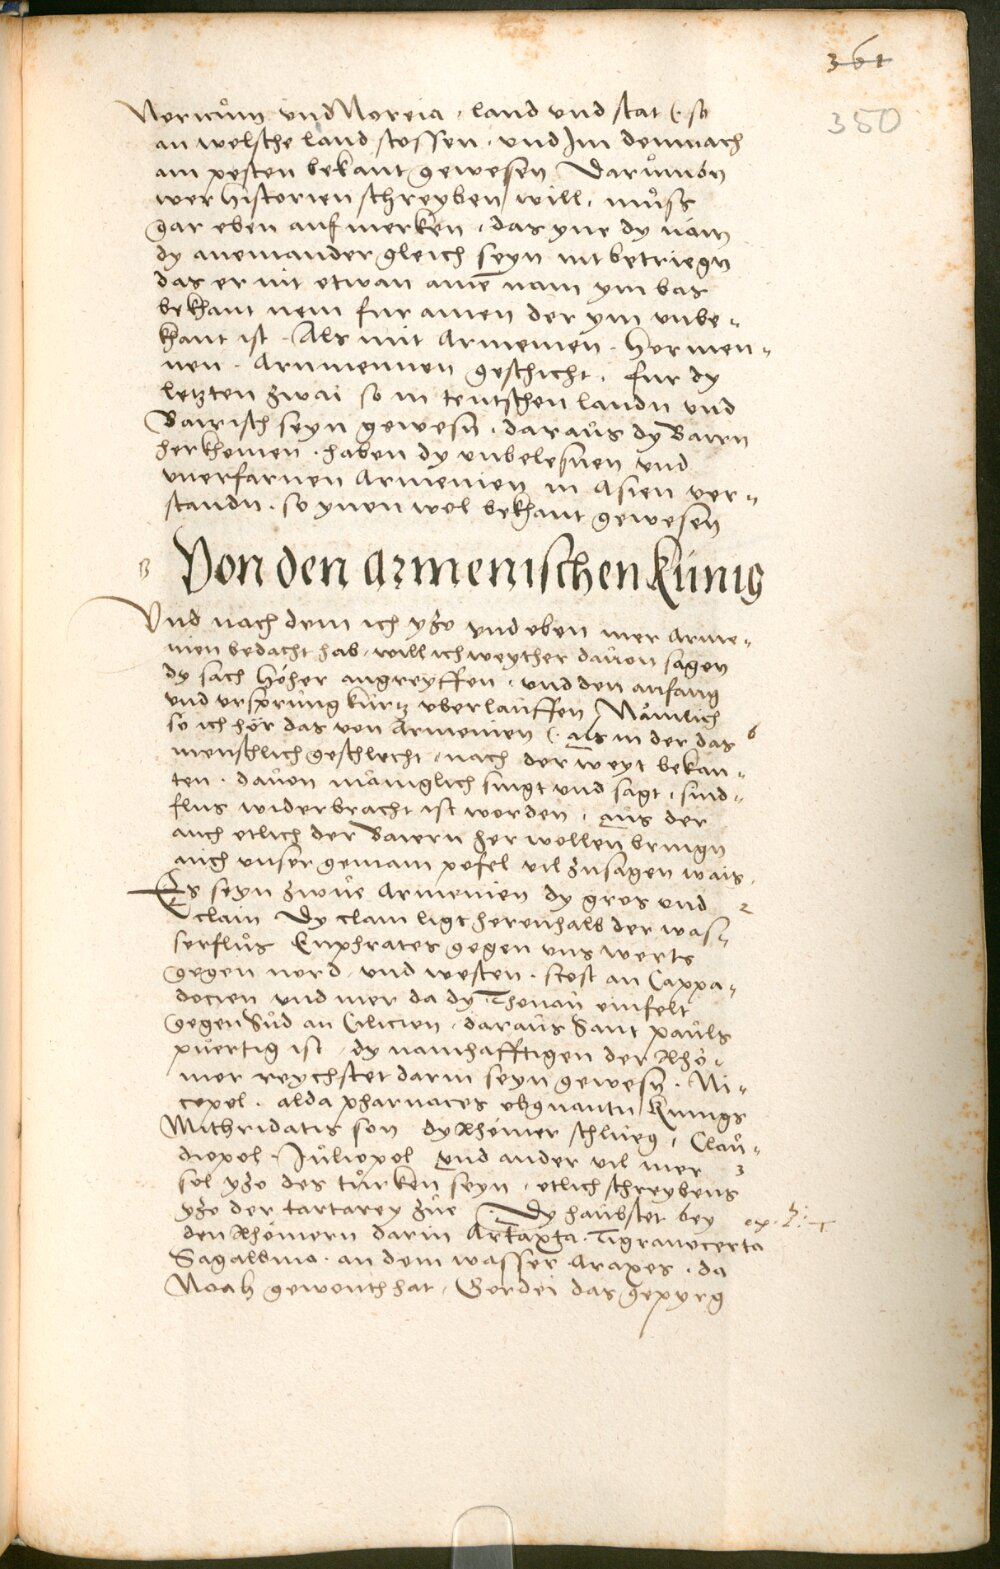 361
350
Noricům und Noreia, land und stat (. so
an welsche land stossen. und Im dennach
am pesten bekant gewesen Darůmbn
wer historien schreyben will, můss
gar eben aufmerken, das yne dy näm
dy aneinander gleich seyn nit betriegn
das er nit etwan ainē nam ym bas
bekhant nem fur ainen der ym unbe„
khant ist. Als mit Armenien. Hermen„
nen. Armmennen geschicht. fur dy
letzten zwai so in teutschen landn und
Bairisch seyn gewesn. daraůs dy Bairn
herkhomen. haben dy unbelesnen und
unerfarnen Armenien in Asien ver„
standn. so ynen wol bekhant gewesen
B Von den armenischen künig
Und nach dem ich yzo und eben mer Arme„
nien bedacht hab, will ich weyther daůon sagen
dy sach höher angreyffen. und den anfang
und ursprůng kůrtz uberlauffen / Nämlich
so ich hör das von Armenien (. als in der das 6
menschlich geschlecht, nach der weyt bekan„
ten. daůon mäniglich singt und sagt, sind„
flus widerbracht ist worden, aůs der
auch etlich der Baiern her wollen bringn
auch unser gemain pofel vil zusagen wais.
Es seyn zwue Armenien dy gros und 2
clain Dy clain ligt herenhalb der was„
serflůs Euphrates gegen uns werts
gegen nord. und westen. stost an Cappa„
docien und mer da dy Thonaů einfelt
gegen Sůd an Cilicien. daraůs Sant paůls
půertig ist, dy namhafftigen der Rhö„
mer reychstet darin seyn gewesn. Ni„
copol. alda pharnaces etquantn kunigs
Mithridatis son dy Rhömer schlueg, Claů„
diopol. Jůliopol und ander vil mer 3
sol yzo des tůrken seyn, etlich schreybens
yzo der tartarey zůe (. Dy haubstet bey
den Rhömern darin Artaxta. Tigranocerta
Sagalbina. an dem wasser Araxes. da
Noah gewonth hat, Gordei das gepyrg